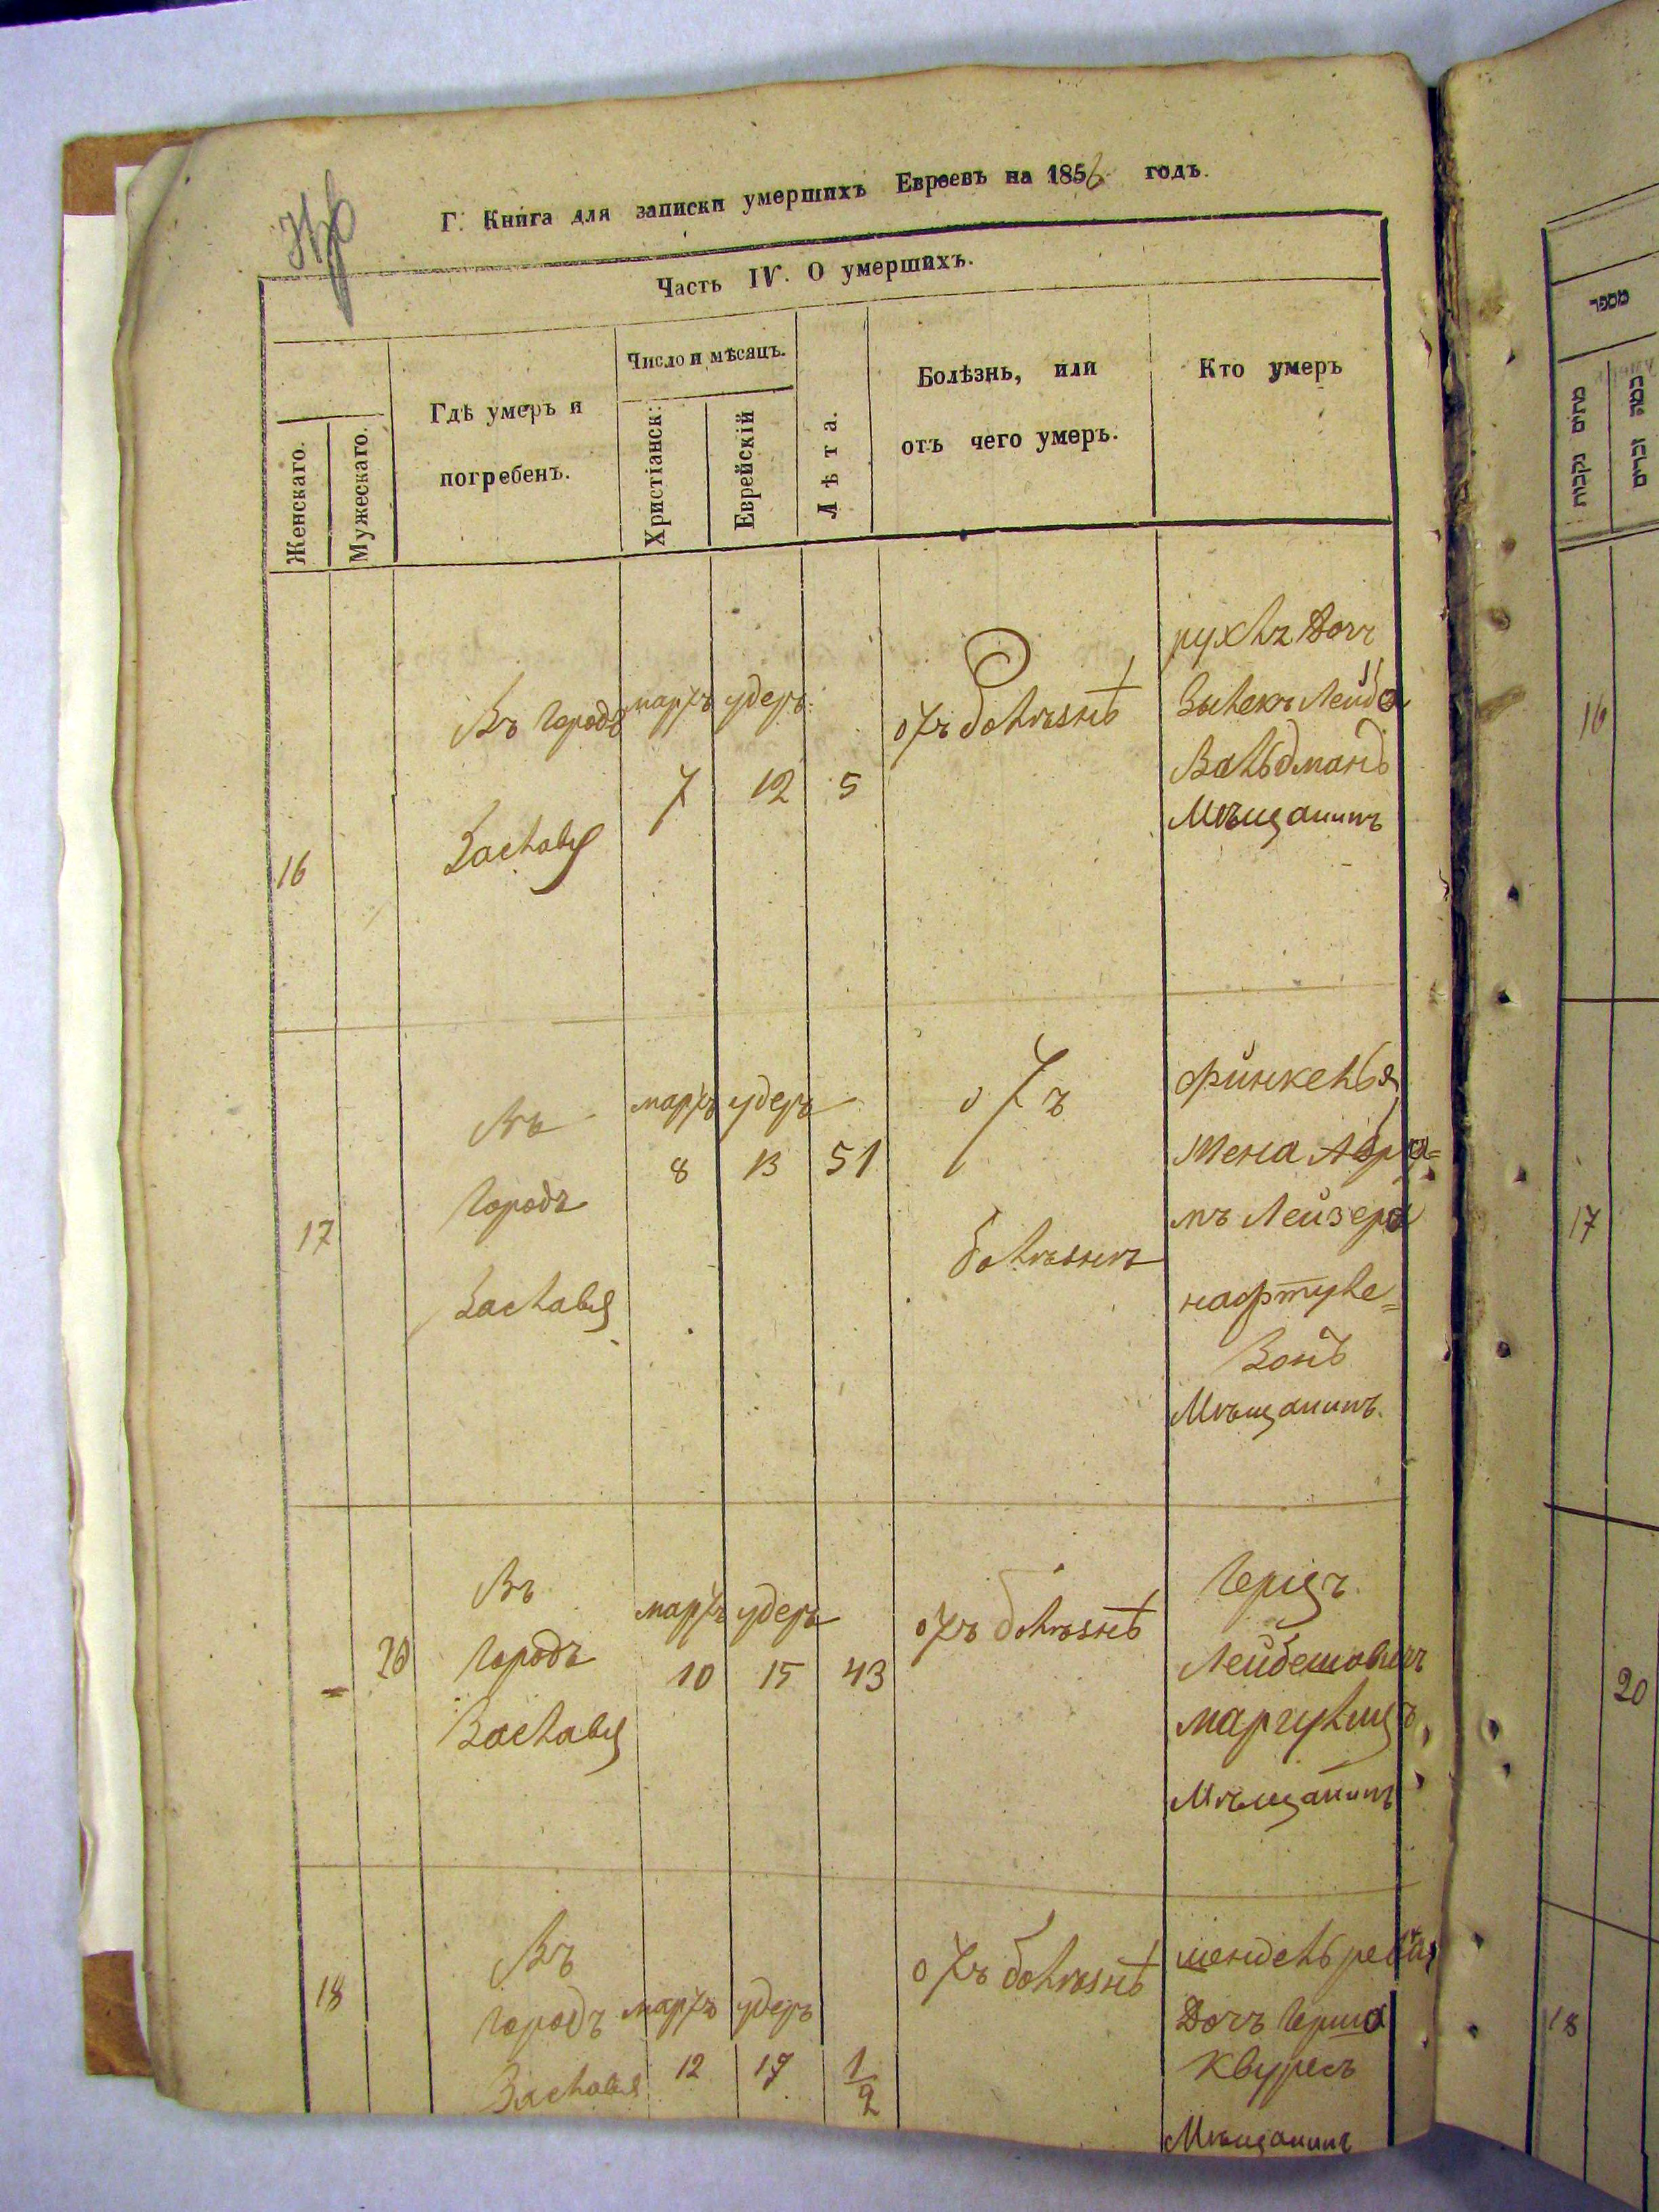 Г. Книга для записки умершихъ Евреевъ на 1856 годъ.
Часть IV. О умершихъ.
Женскаго.
Мужескаго.
Гдѣ умеръ и
погребенъ.
Число и мѣсяцъ.
Христіанск:
Еврейскій
Лѣта.
Болѣзнь, или
отъ чего умеръ.
Кто умеръ
16
Въ Городѣ
Заславѣ
мартъ
7
удеръ
12
5
отъ болѣзнѣ
рухлъ Дочъ
Лейба
Вальдманъ
Мѣщанинъ
17
Въ
Городѣ
Заславѣ
мартъ
8
удеръ
13
51
отъ
болѣзни
финкелья
жена Абра=
мъ Лейзера
нафтуле=
Зонъ
Мѣщанинъ.
20
Въ
Городѣ
Заславѣ
мартъ
10
удеръ
15
43
отъ болѣзнѣ
Герцъ
Лейбешовичъ
Мѣщанинъ
18
Въ
городѣ
Заславѣ
мартъ
12
удеръ
17
1/2
отъ болѣзнѣ
Дочъ Герша
Мѣщанинъ
מספר
מתים נקבות
כמה זכרים
16
17
20
18